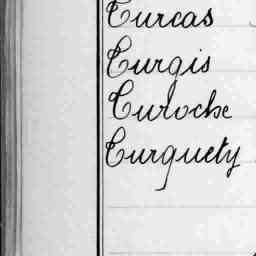 Turcas
Turgis
Turoche
Turquety